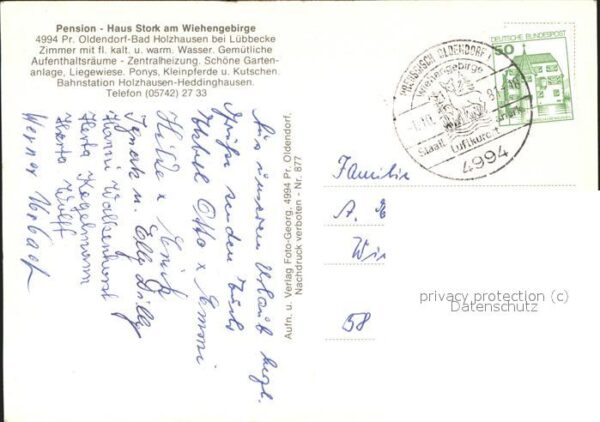 Pension - Haus Stork am Wiehengebirge
4994 Pr. Oldendorf-Bad Holzhausen bei Lübbecke
Zimmer mit fl. kalt. u. warm. Wasser. Gemütliche
Aufenthaltsräume - Zentralheizung. Schöne Garten-
anlage, Liegewiese. Ponys, Kleinpferde u. Kutschen.
Bahnstation Holzhausen-Heddinghausen.
Telefon (05742) 27 33
Aus unserem Urlaub herzl.
Grüße senden Euch
Otto x Emmi
Hilde x
u. Elly Dilly
Hanni
Herta Kegelmann
Herta Wolff
Werner
Aufn. u. Verlag Foto-Georg, 4994 Pr. Oldendorf.
Nachdruck verboten - Nr. 877
PREUSSISCH OLDENDORF
Wiehengebirge
Staatl. Luftkurort
4994
DEUTSCHE BUNDESPOST
50
Familie
A. E
Win
58
privacy protection (c)
Datenschutz